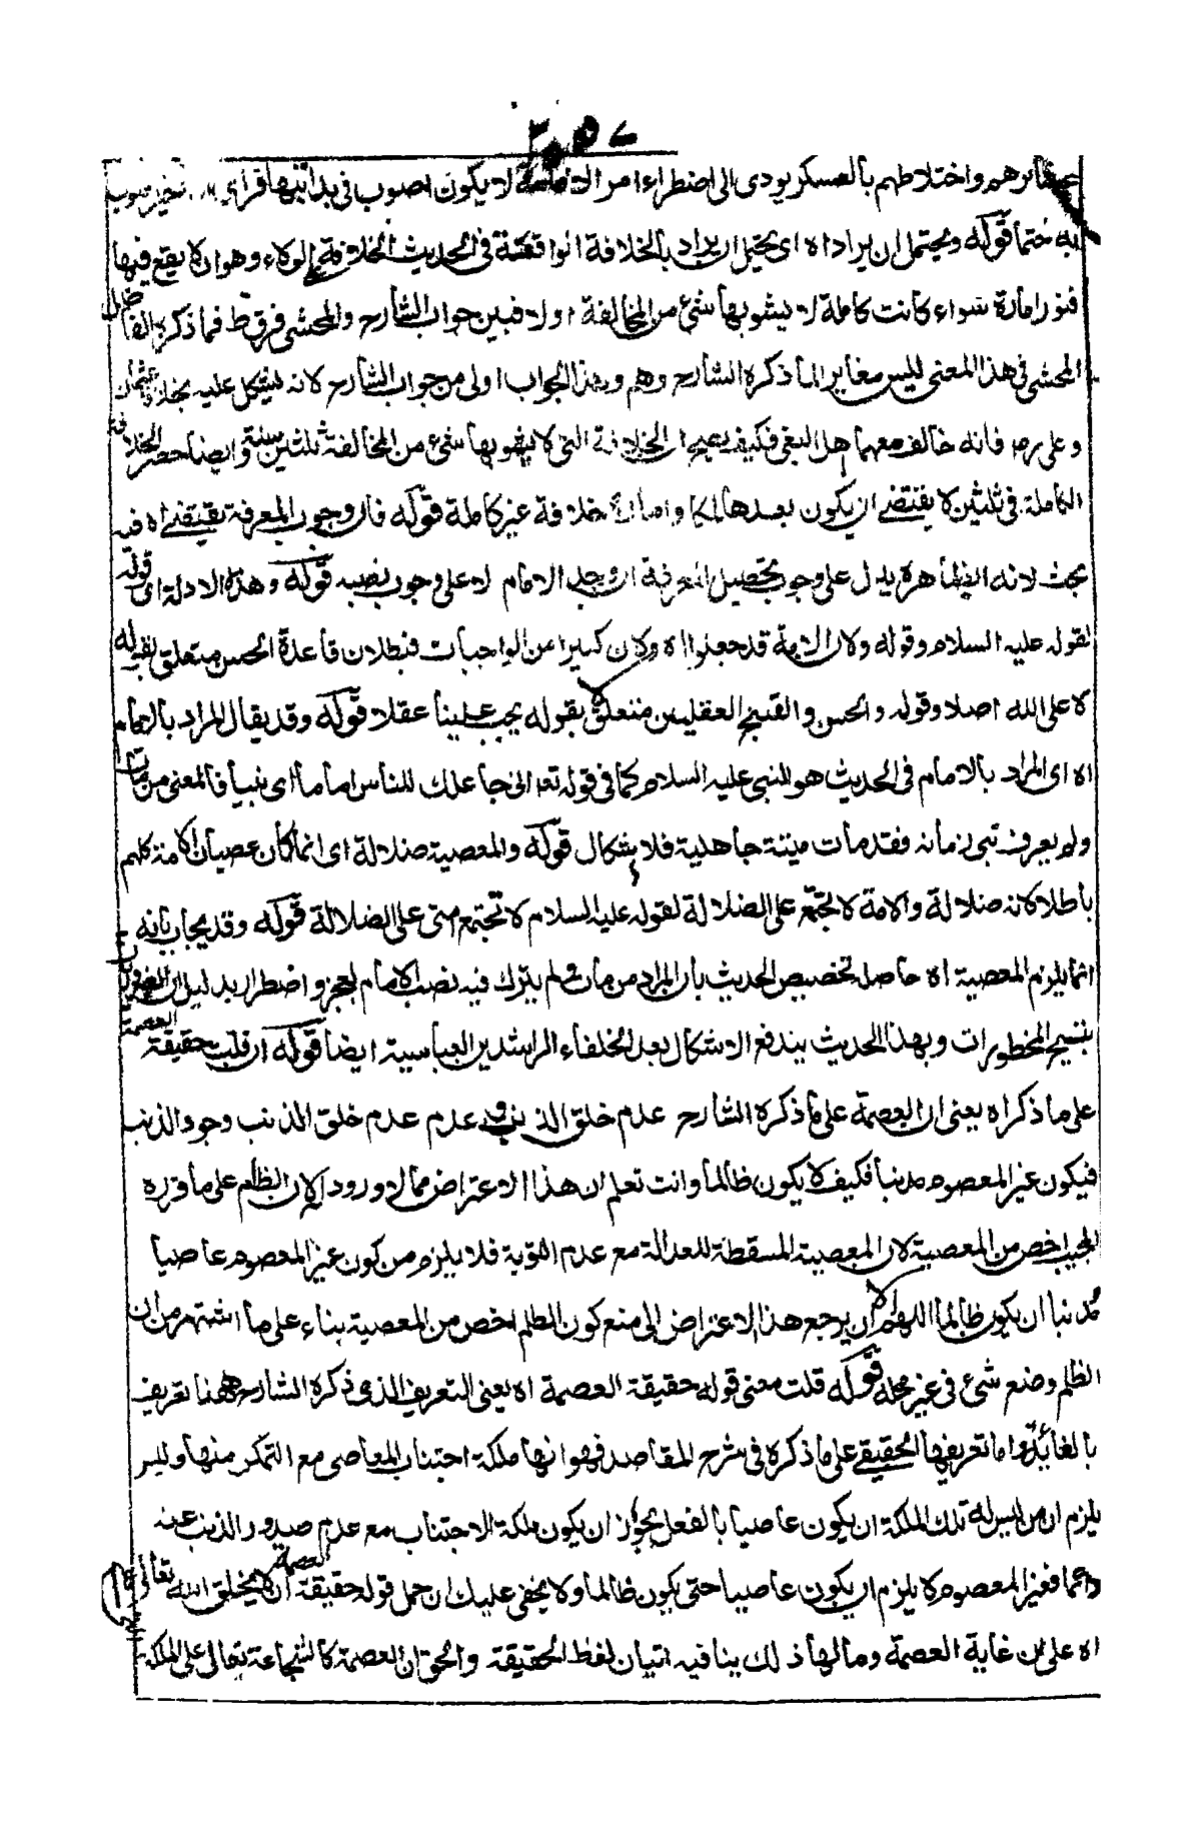 عشائرهم واختلاطهم بالعسكر يودى الى اضطراء امر الامامة لا يكون اصوب فى بدايتها فراى تخير صوب
به ختما قوله ويحتمل ان يراد اه اى يحتمل ان يراد بالخلافة الواقعة فى الحديث الخلافة الولاء وهو ان لا يقع فيها
فتور امارة سواء كانت كاملة لا يشوبها شئ من المخالفة اولا فبين جواب الشارح والمحشى فرق ط فما ذكره الفاضل
المحشى فى هذا المعنى ليس مغايرا لما ذكره الشارح وهم وهذا الجواب اولى من جواب الشارح لانه يشكل عليه بخلافة عثمان
وعلى رض فانه خالف معهما اهل البغى فكيف يصح ان الخلافة التى لا يشوبها شئ من المخالفة ثلثين سنة وايضا حصر الخلافة
الكاملة فى ثلثين لا يقتضى ان يكون بعدها ملكا وامارة خلافة غير كاملة قوله فان وجوب المعرفة يقتضى اه فيه
بحث لانه الظاهره يدل على وجوب تحصيل المعرفة ان وجد الامام لا على وجوب نصبه قوله وهذه الادلة اى قوله
لقوله عليه السلام وقوله ولان الامة قد جعلوا اه ولان كثيرا من الواجبات فبطلان قاعدة الحسن متعلق بقوله
لا على الله اصلا وقوله والحسن والقبح العقليين متعلق بقوله يجب علينا عقلا قوله وقد يقال المراد بالامام
اه اى المراد بالامام فى الحديث هو النبى عليه السلام كما فى قوله تعا انى جاعلك للناس اماما اى نبيا فالمعنى من مات
ولم يعرف نبى زمانه فقد مات ميتة جاهلية فلا يشكال قوله والمعصية ضلالة اى انما كان عصيان الامة كلهم
باطلا لانه ضلالة والامة لا تجتمع على الضلالة لقوله عليه السلام لا تجتمع امتى على الضلالة قوله وقد يجاب بانه
انما يلزم المعصية اه حاصله تخصيص الحديث بان المراد من مات ولم يترك فيه نصب الامام لعجز واضطرار بدليل ان الضرورات
تبيح المحظورات وبهذا الحديث يندفع الاشكال بعد الخلفاء الراشدين العباسية ايضا قوله ان قلت حقيقة العصمة
على ما ذكر اه يعنى ان العصمة على ما ذكره الشارح عدم خلق الذنب وعدم عدم خلق الذنب وجود الذنب
فيكون غير المعصوم مذنبا فكيف لا يكون ظالما وانت تعلم ان هذا الاعتراض مما لا ورود له لان الظلم على ما قرره
المجيب اخص من المعصية لان المعصية المسقطة للعدالة مع عدم التوبة فلا يلزم من كون غير المعصوم عاصيا
مذنبا ان يكون ظالما اللهم الا ان يرجع هذا الاعتراض الى منع كون الظلم اخص من المعصية بناء على ما اشتهر من ان
الظلم وضع شئ فى غير محله قوله قلت معنى قوله حقيقة العصمة اه يعنى التعريف الذى ذكره الشارح ههنا تعريف
بالغاية واما تعريفها الحقيقى على ما ذكره فى شرح المقاصد فهو انها ملكة اجتناب المعاصى مع التمكن منها وليس
يلزم ان من ليس له تلك الملكة ان يكون عاصيا بالفعل يجواز ان يكون ملكة الاجتناب مع عدم صدور الذنب عنه
دائما فغير المعصوم لا يلزم ان يكون عاصيا حتى يكون ظالما ولا يخفى عليك ان حمل قوله حقيقة العصمة ان لا يخلق الله تعالى
اه على ان غاية العصمة ومالها ذلك ينافيه اتيان لفظ الحقيقة والحق ان العصمة كالشجاعة يقال على الملكة